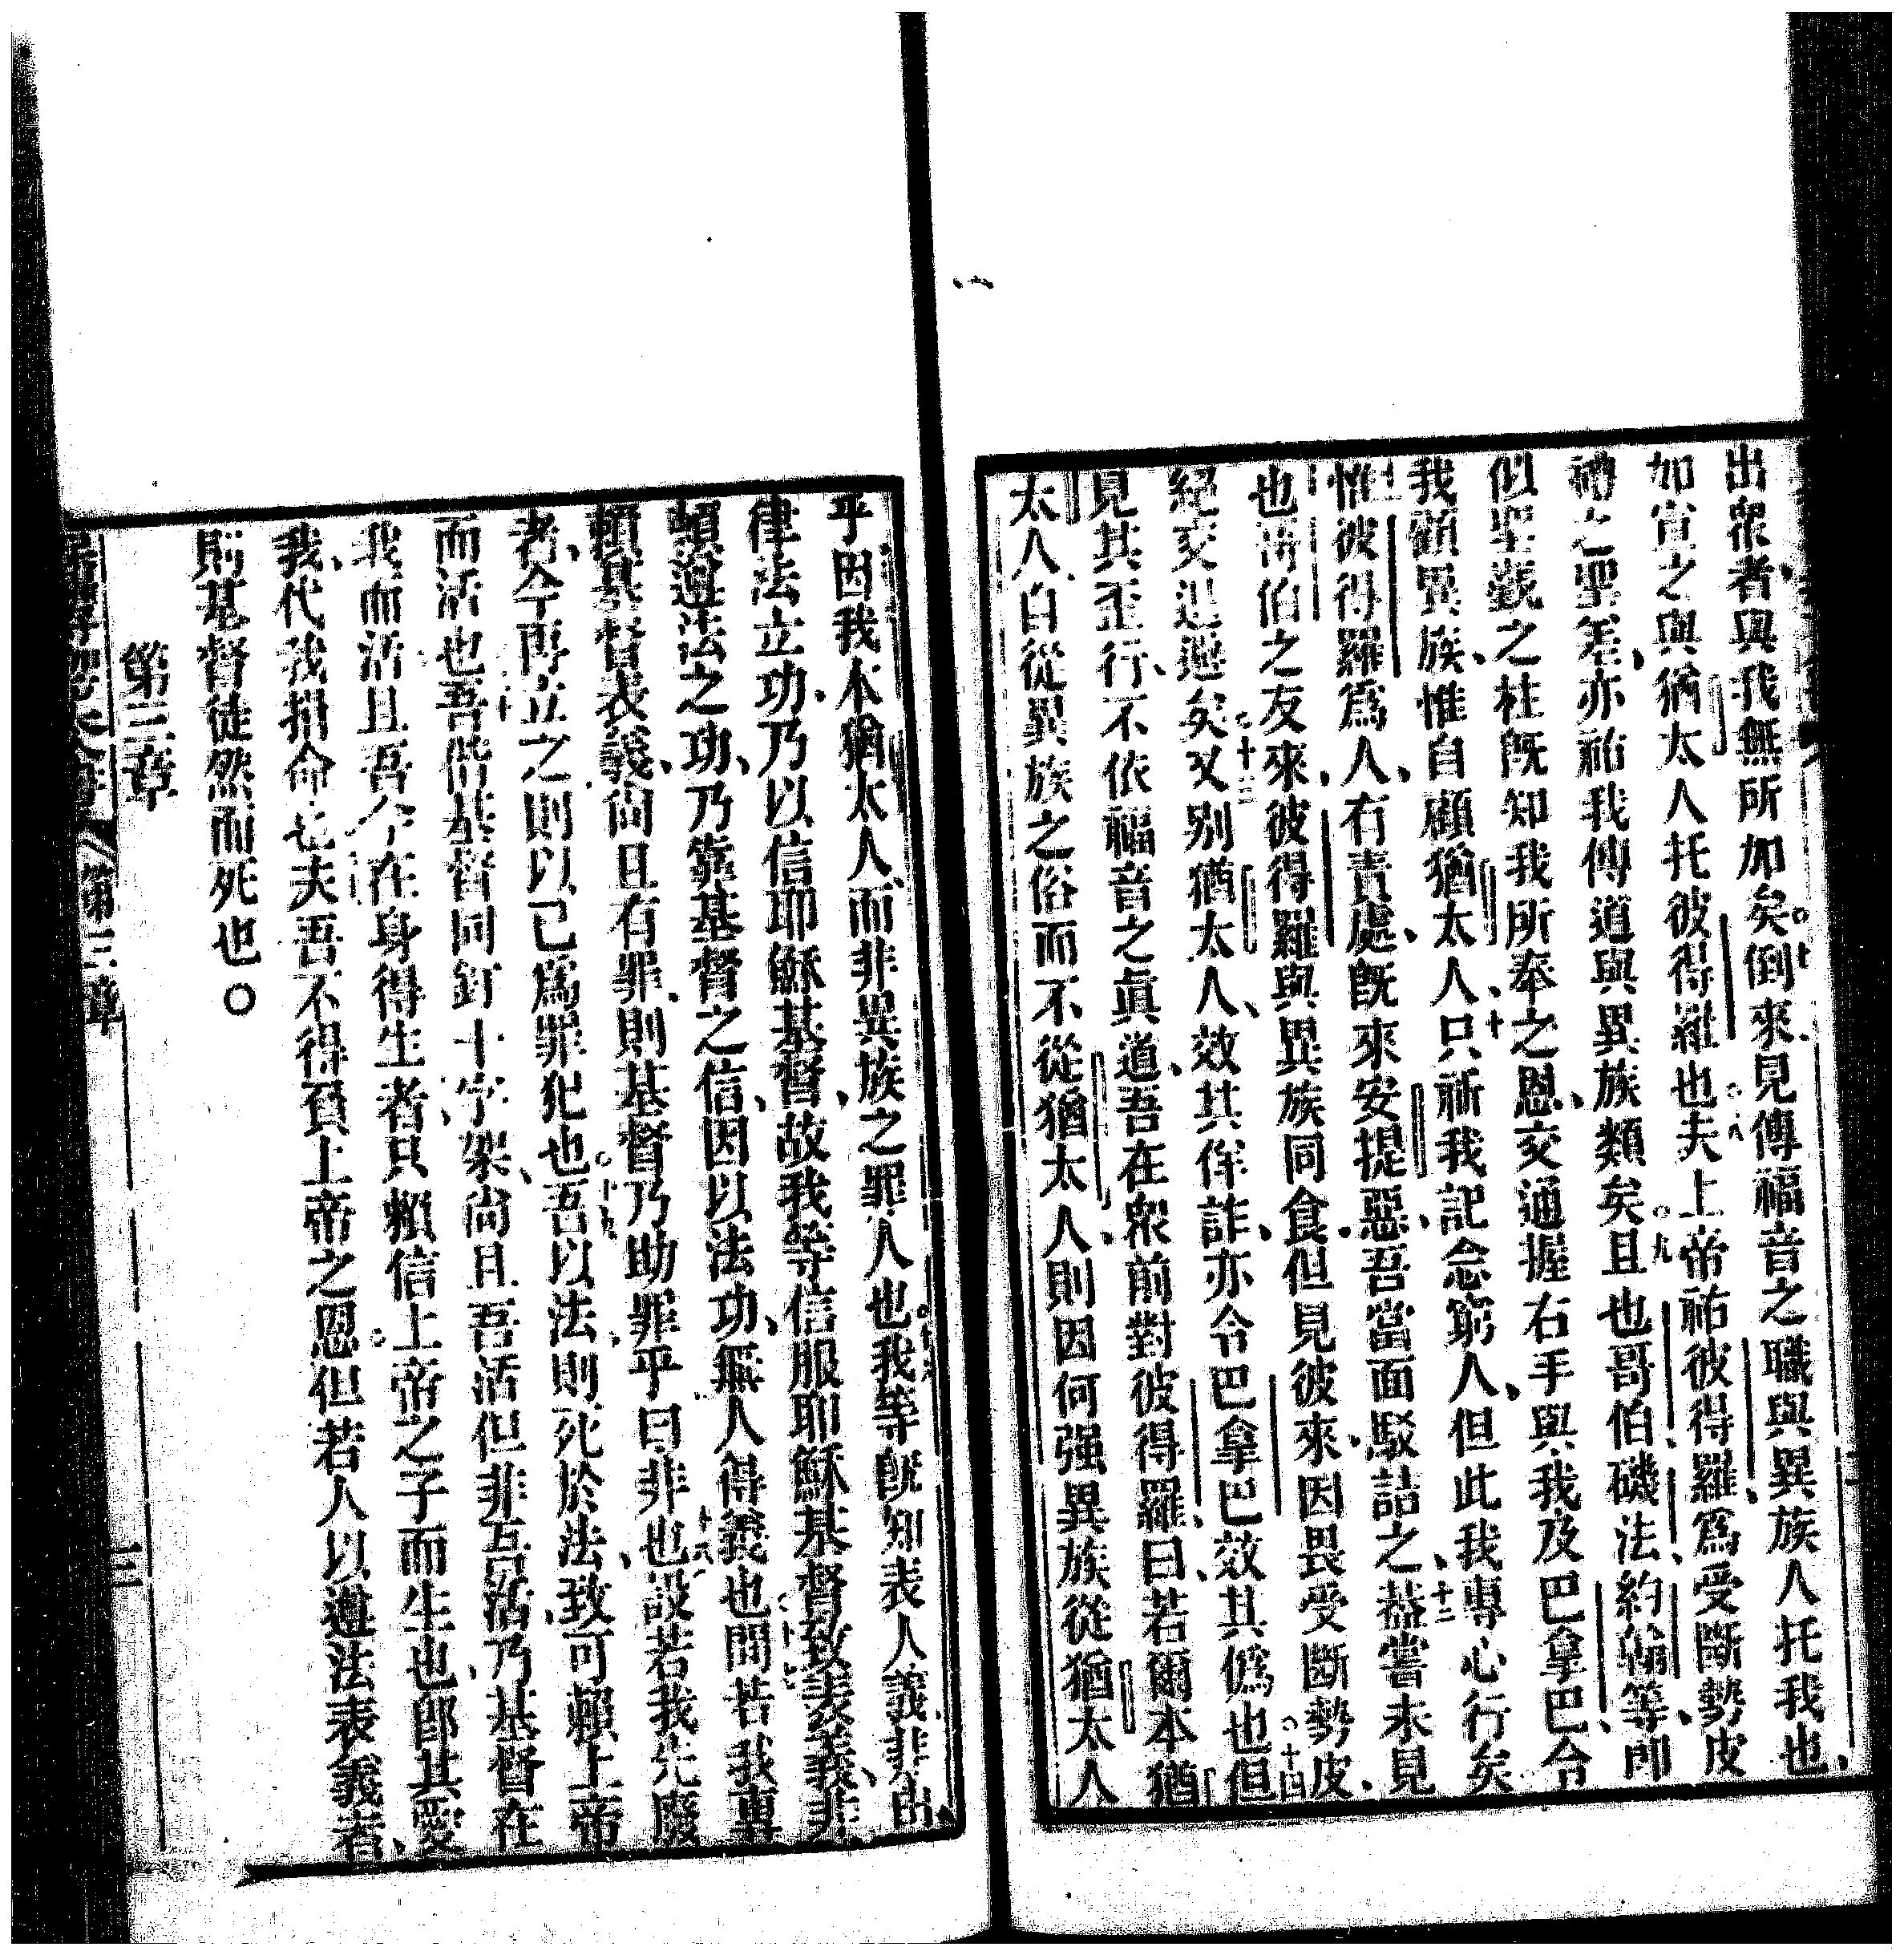 出衆者、與我無所加矣。七倒來見傳福音之職與異族人托我也、
如宣之與猶太人托彼得羅也。八夫上帝祐彼得羅、爲受斷勢皮
禮之聖差、亦祐我傳道與異族類矣。九且也哥伯、磯法、約翰等、卽
似聖氎之柱旣知我所奉之恩、交通握右手與我及巴拿巴、令
我顧異族、惟自顧猶太人、十只祈我記念窮人、但此我專心行矣
惟彼得羅爲人、有責處、旣來安提惡、吾當面駁詰之、十二葢嘗未見
也哥伯之友來、彼得羅與異族同食、但見彼來、因畏受斷勢皮、
絕交退避矣。十三又别猶太人、效其佯詐、亦令巴拿巴效其僞也。十四但
見其歪行、不依福音之眞道、吾在衆前對彼得羅、曰、若爾本猶
太人、自從異族之俗而不從猶太人、則因何强異族從猶太人
乎、因我本猶太人、而非異族之罪人也。我等旣知表人義、非由
律法立功、乃以信耶穌基督、故我等信服耶穌基督、致表義、非
賴遵法之功、乃靠基督之信、因以法功、無人得義也。十七間若我專
賴基督表義、尙且有罪、則基督乃助罪乎、曰、非也。十八設若我先廢
者、今再立之、則以已爲罪犯也。十九吾以法、則死於法、致可賴上帝
而活也。吾偕基督同釘十字架、尙且吾活、但非吾活、乃基督在
我而活、且吾今在身得生者、只賴信上帝之子而生也、卽其愛
我、代我捐命也。夫吾不得負上帝之恩、但若人以遵法表義者、
則基督徒然而死也。○
第三章
第三章
三